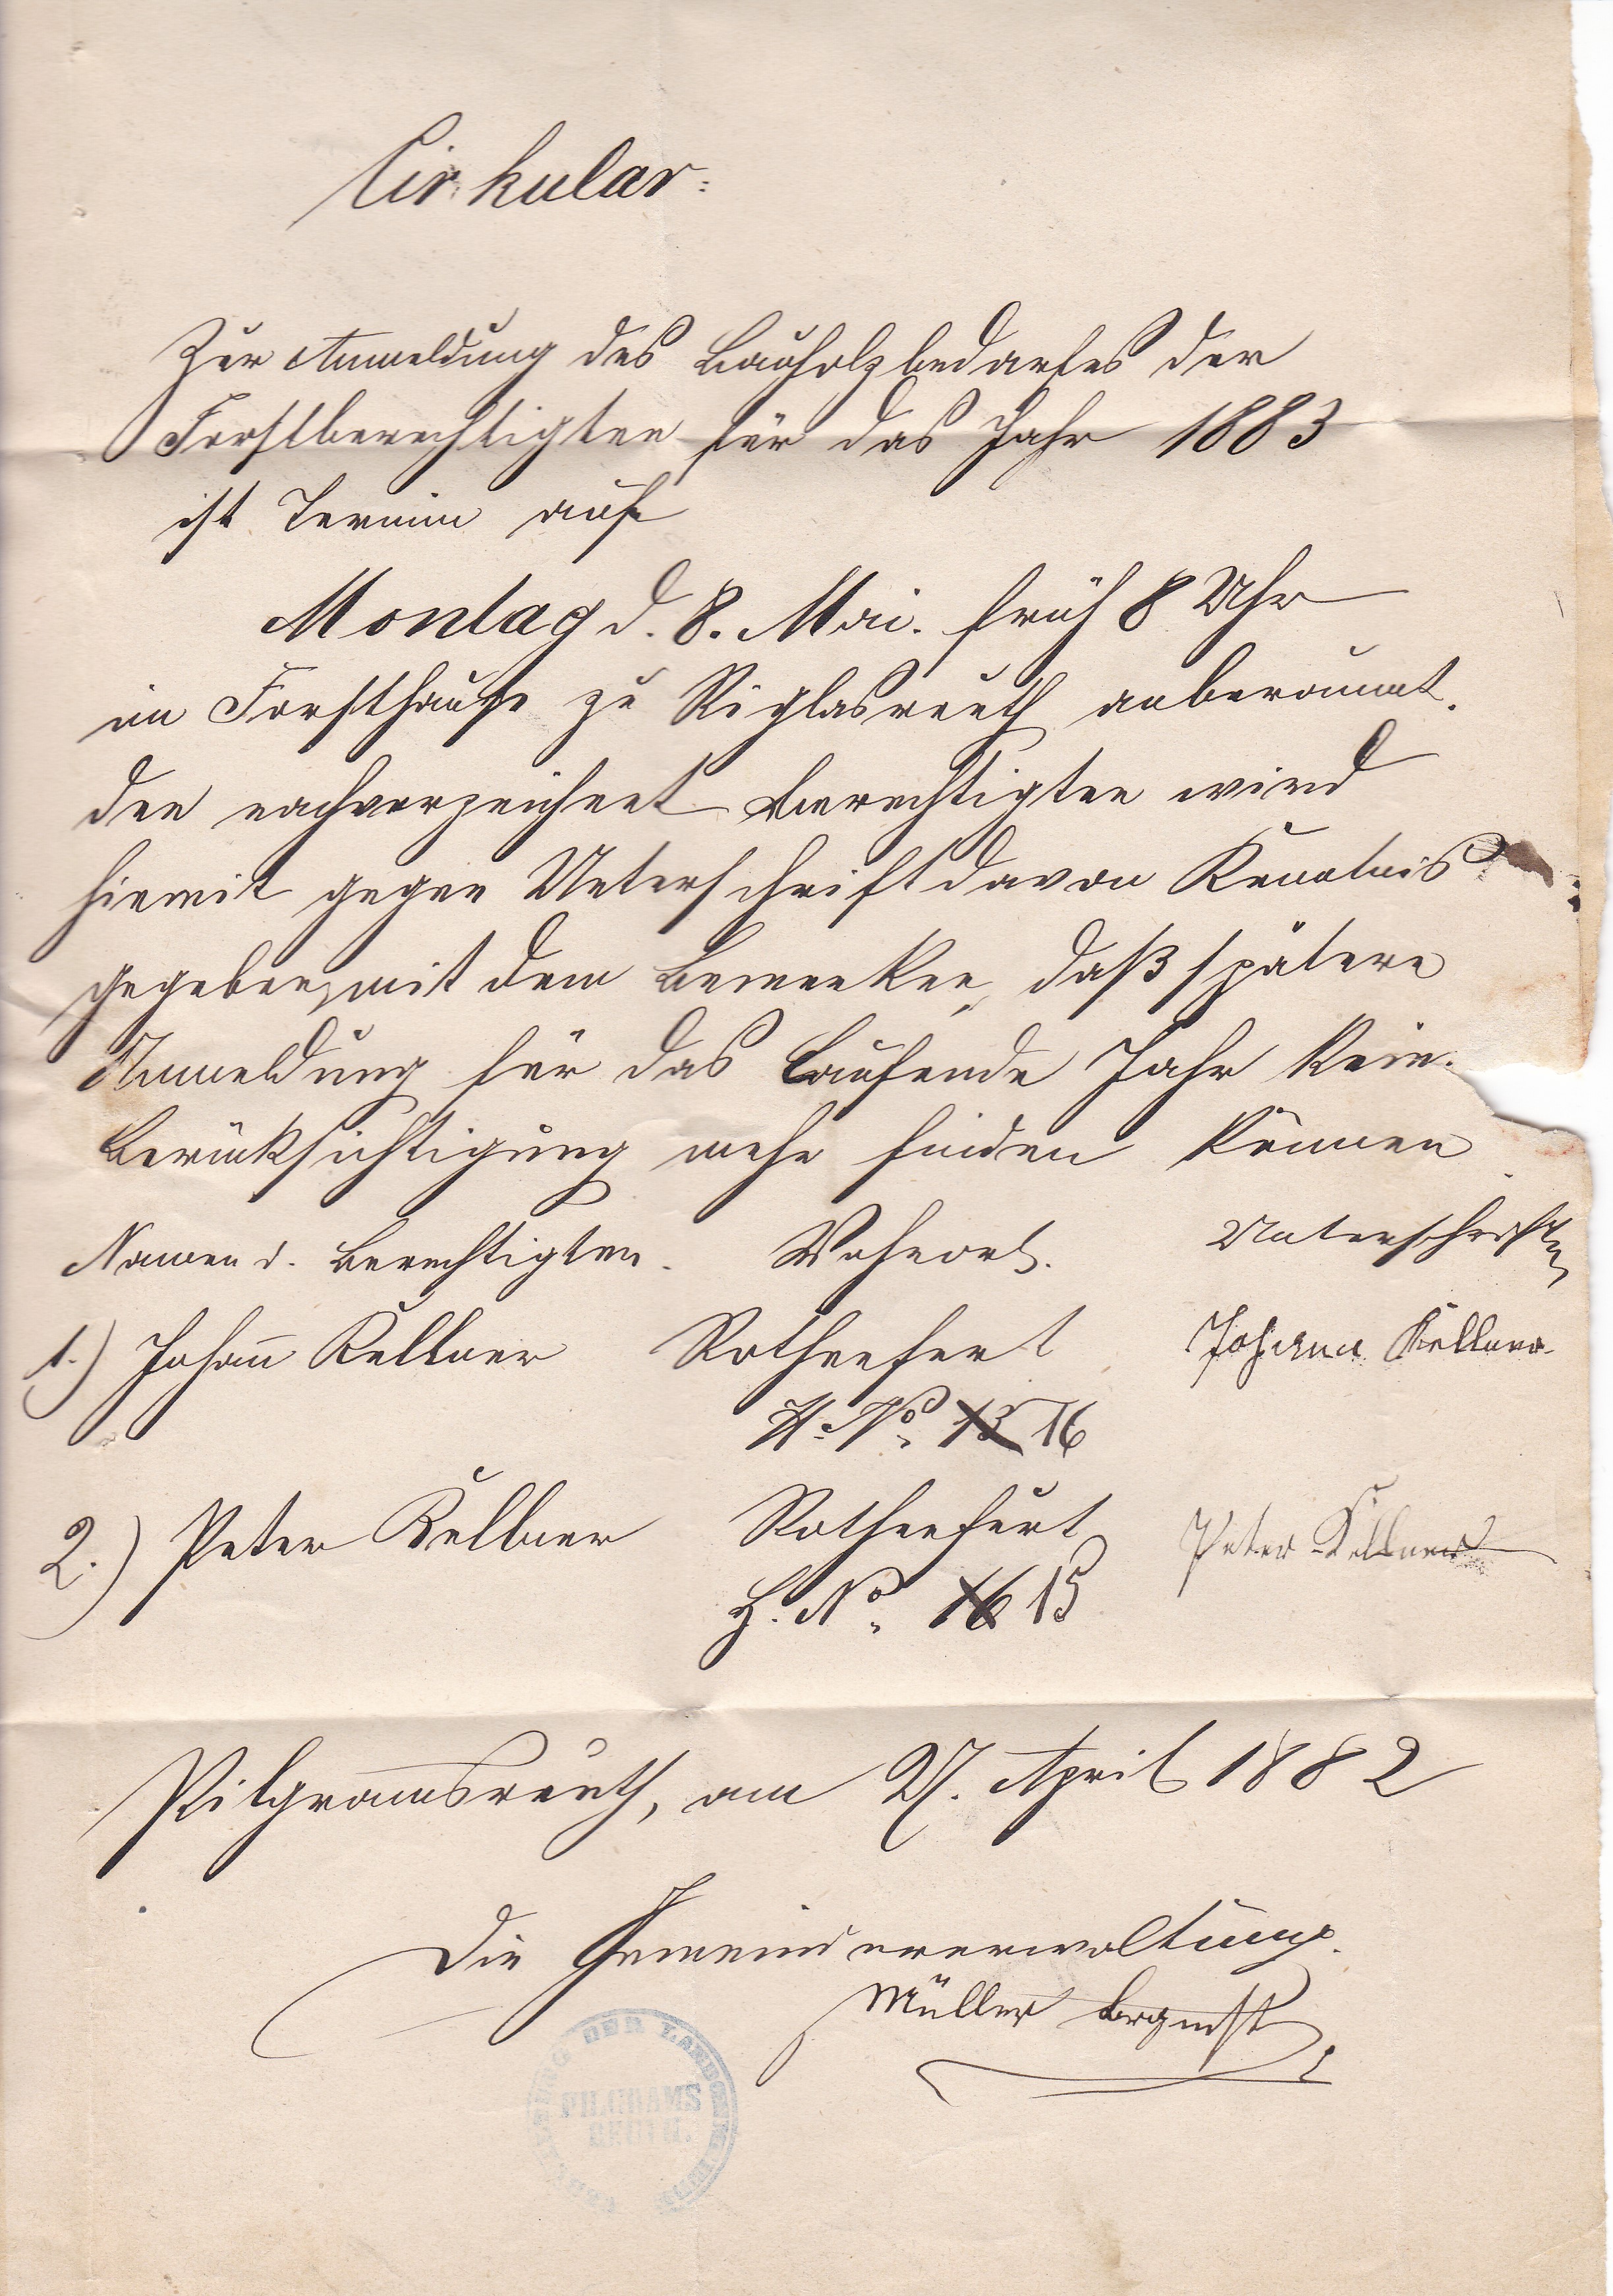 Cirkular:
Zur Anmeldung des Bauholzbedarfes der
Forstberechtigten für das Jahr 1883
ist Termin auf
Montag d. 8. Mai. früh 8 Uhr
im Forsthause zu Riglasreuth anberaumt.
Den nachverzeichnet Berechtigten wird
hiemit gegen Unterschrift davon Kenntnis
gegeben, mit dem Bemerken, daß spätere
Anmeldung für das laufende Jahr kein.
Berücksichtigung mehr finden können
Namen d. Berechtigten. Wohnort. Unterschriften
1.) Johann Kellner Rothenfurt Johann Kellner.
H. No. 15 16
2.) Peter Kellner Rothenfurt Peter Kellner
H. No. 16 15
Pilgramsreuth, am 27. April 1882
Die Gemeindeverwaltung.
Müller Brgmst
DER LANDGEMEINDE
PILGRAMS
REUTH.